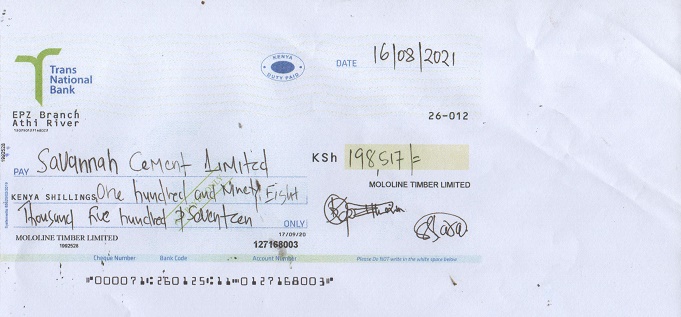 Trans
National
Bank
KENYA
DUTY PAID
DATE 16/08/2021
EPZ Branch
Athi River
26-012
PAY Savannah Cement Limited
KSh 198,517/=
MOLOLINE TIMBER LIMITED
KENYA SHILLINGS One hundred and Ninety Eight
Thousand five hundred & Seventeen ONLY
MOLOLINE TIMBER LIMITED
1992528
17/09/20
127168003
Cheque Number Bank Code Account Number Please Do NOT write in the white space below
"000071⑆260125⑆11⑉0127168003"
1992528